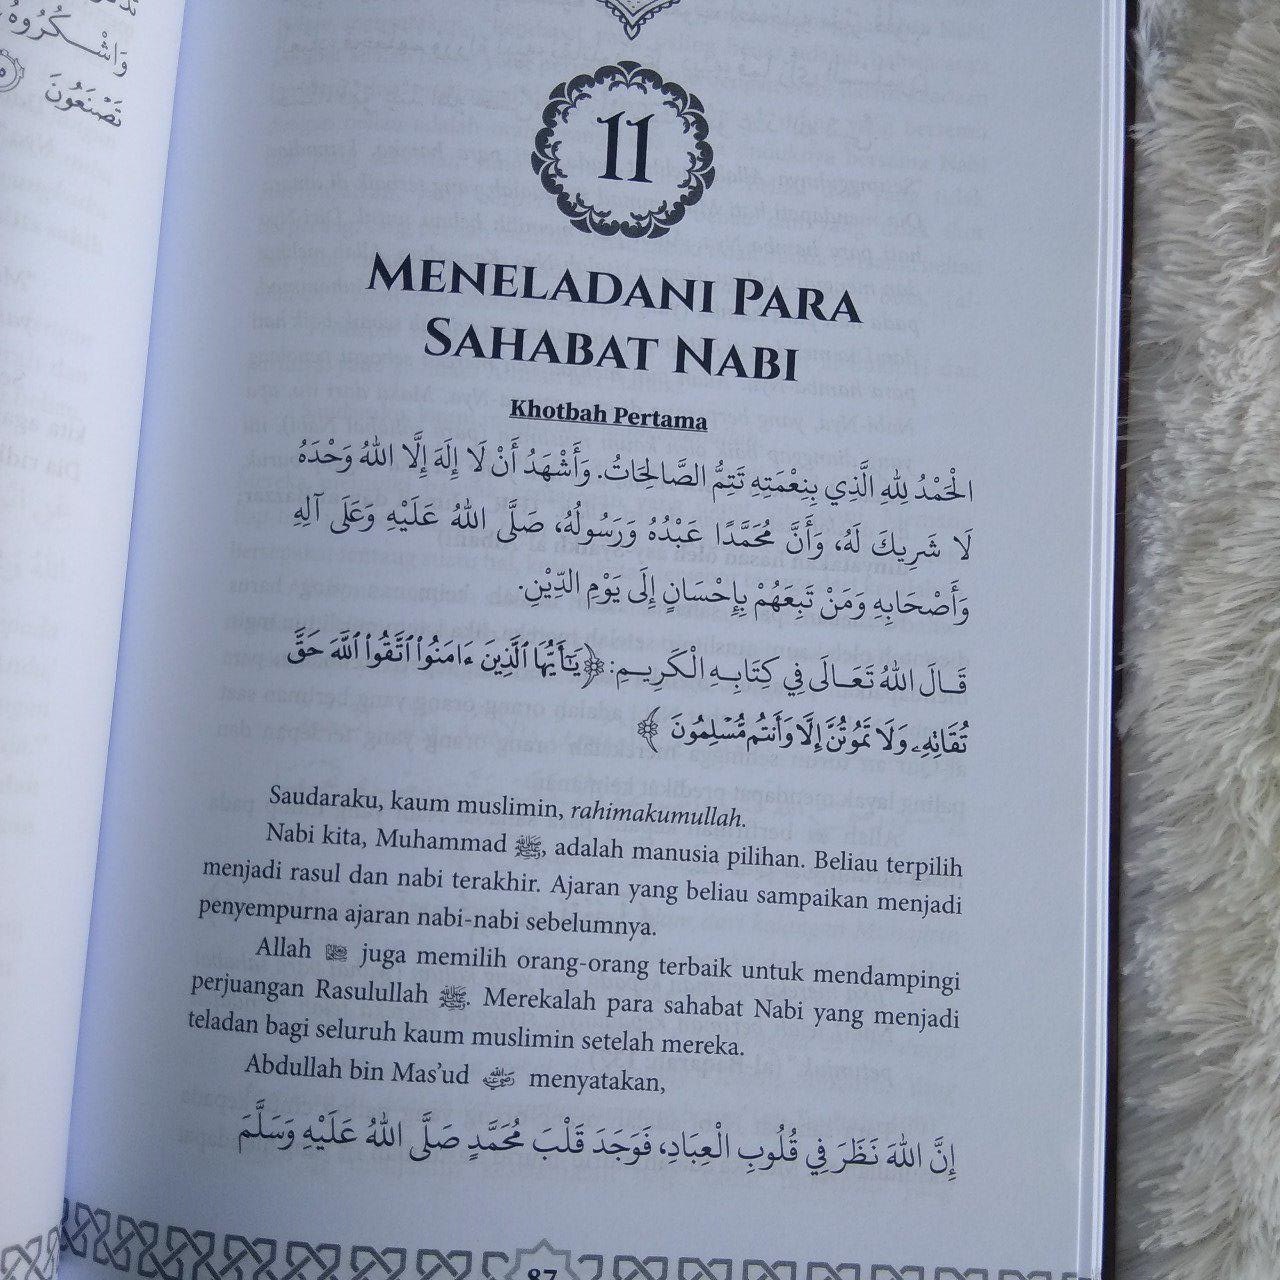 وَاشْكُرُوهُ
تَصْنَعُونَ
11
MENELADANI PARA
SAHABAT NABI
Khotbah Pertama
الْحَمْدُ لِلهِ الَّذِي بِنِعْمَتِهِ تَتِمُّ الصَّالِحَاتُ. وَأَشْهَدُ أَنْ لَا إِلَهَ إِلَّا اللهُ وَحْدَهُ
لَا شَرِيكَ لَهُ، وَأَنَّ مُحَمَّدًا عَبْدُهُ وَرَسُولُهُ، صَلَّى اللهُ عَلَيْهِ وَعَلَى آلِهِ
وَأَصْحَابِهِ وَمَنْ تَبِعَهُمْ بِإِحْسَانٍ إِلَى يَوْمِ الدِّيْنِ.
قَالَ اللهُ تَعَالَى فِي كِتَابِهِ الْكَرِيمِ: ﴿يَٰٓأَيُّهَا ٱلَّذِينَ ءَامَنُوا۟ ٱتَّقُوا۟ ٱللَّهَ حَقَّ
تُقَاتِهِۦ وَلَا تَمُوتُنَّ إِلَّا وَأَنتُم مُّسْلِمُونَ ﴾
Saudaraku, kaum muslimin, rahimakumullah.
Nabi kita, Muhammad ﷺ, adalah manusia pilihan. Beliau terpilih
menjadi rasul dan nabi terakhir. Ajaran yang beliau sampaikan menjadi
penyempurna ajaran nabi-nabi sebelumnya.
Allah juga memilih orang-orang terbaik untuk mendampingi
perjuangan Rasulullah ﷺ. Merekalah para sahabat Nabi yang menjadi
teladan bagi seluruh kaum muslimin setelah mereka.
Abdullah bin Mas'ud menyatakan,
إِنَّ اللهَ نَظَرَ فِي قُلُوبِ الْعِبَادِ، فَوَجَدَ قَلْبَ مُحَمَّدٍ صَلَّى اللهُ عَلَيْهِ وَسَلَّمَ
87